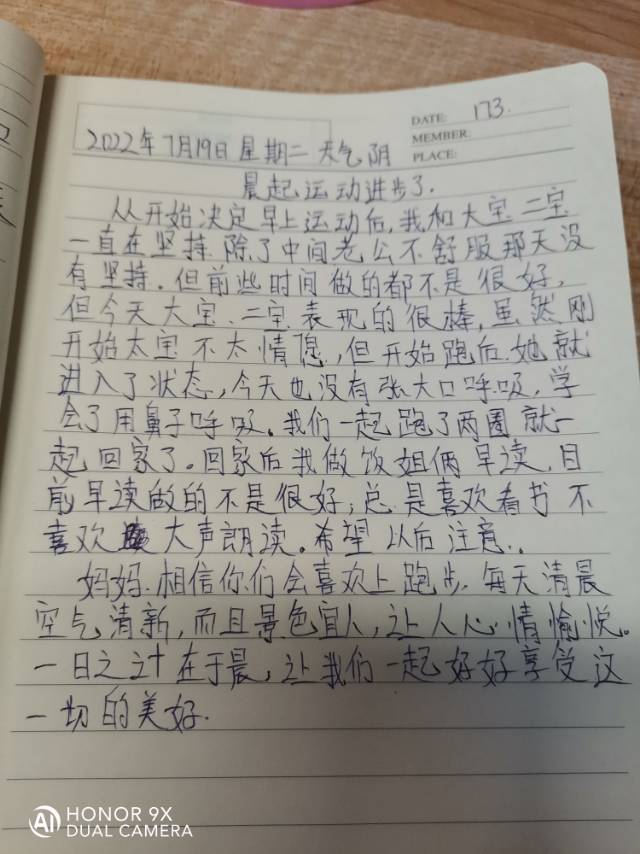 DATE: 173.
MEMBER:
PLACE:
2022年7月19日 星期二 天气阴
晨起运动进步了.
从开始决定早上运动后,我和大宝二宝
一直在坚持.除了中间老公不舒服那天没
有坚持.但前些时间做的都不是很好,
但今天大宝.二宝表现的很棒,虽然刚
开始大宝不太情愿,但开始跑后.她就
进入了状态,今天也没有张大口呼吸,学
会了用鼻子呼吸。我们一起跑了两圈就一
起回家了。回家后我做饭姐俩早读,目
前早读做的不是很好,总是喜欢看书不
喜欢 大声朗读。希望以后注意.
妈妈.相信你们会喜欢上跑步.每天清晨
空气清新,而且景色宜人,让人心情愉悦。
一日之计在于晨,让我们一起好好享受这
一切的美好.
HONOR 9X
DUAL CAMERA